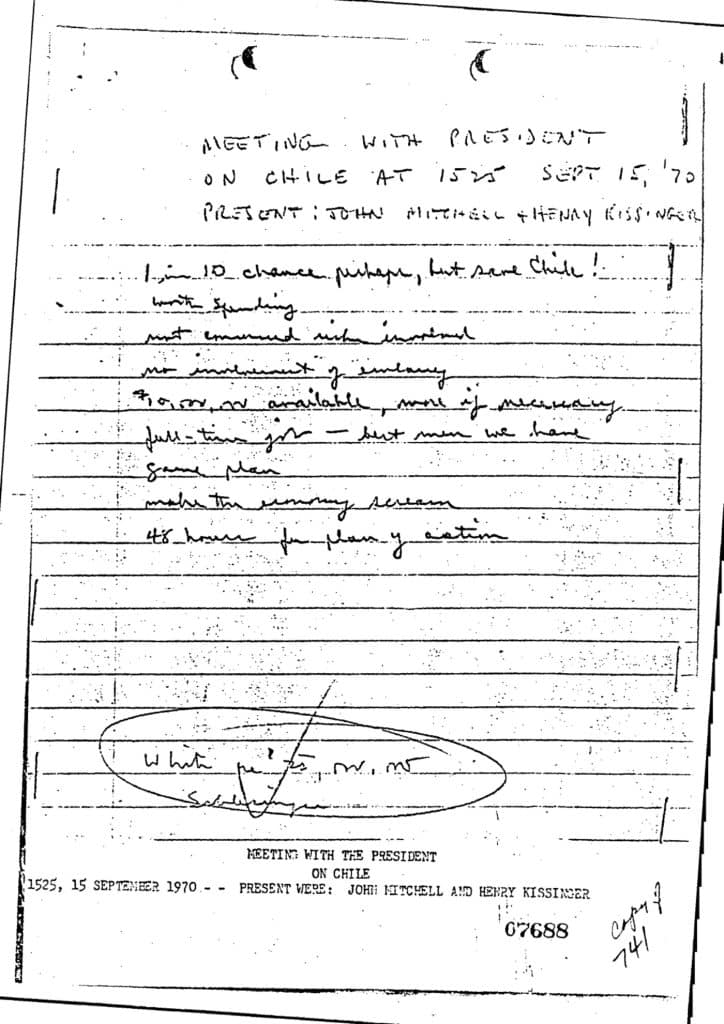 MEETING WITH PRESIDENT
ON CHILE AT 1525 SEPT 15, '70
PRESENT: JOHN MITCHELL + HENRY KISSINGER
1 in 10 chance perhaps, but save Chile!
worth spending
not concerned risks involved
no involvement of embassy
$10,000,000 available, more if necessary
full-time job — best men we have
game plan
make the economy scream
48 hours for plan of action
White
25,000,000
MEETING WITH THE PRESIDENT
ON CHILE
1525, 15 SEPTEMBER 1970 - - PRESENT WERE: JOHN MITCHELL AND HENRY KISSINGER
07688
copy of
741